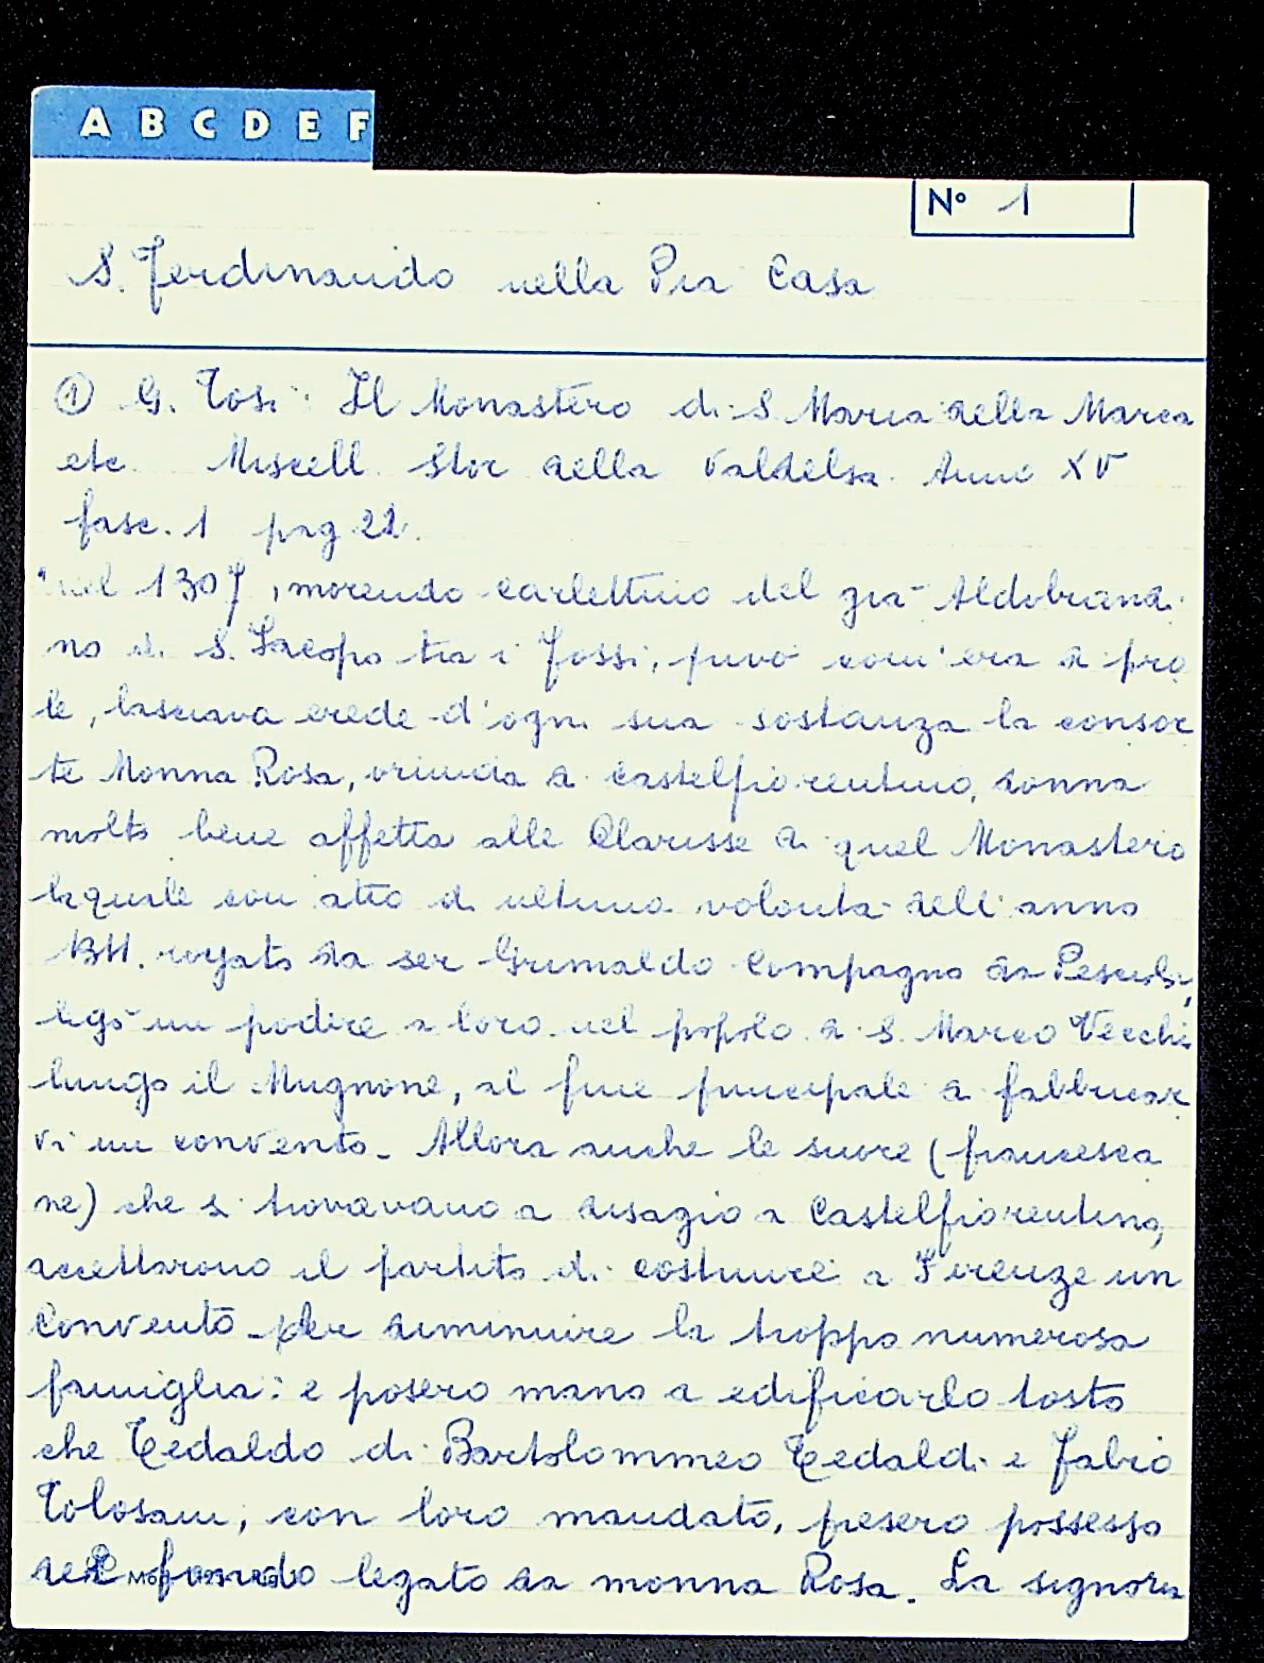 A B C D E F
Nº 1
S. Ferdinando nella Pia Casa
① G. Tosi: Il Monastero di S Maria della Marca
etc. Miscell. Stor della Valdelsa. Anno XV
fasc. 1 pag 22.
"nel 1307, morendo Carlettino del già Aldobrandi
no di S. Iacopo tra i Fossi, privo com'era di pro
le, lasciava erede d'ogni sua sostanza la consor
te Monna Rosa, oriunda di Castelfiorentino, donna
molto bene affetta alle Clarisse di quel Monastero
la quale con atto di ultima volontà dell'anno
rogato da ser Grimaldo Compagno da Pesciola,
legò un podere a loro nel popolo di S. Marco Vecchio
lungo il Mugnone, al fine principale di fabbricar
vi un convento. Allora anche le suore (francesca
ne) che si trovavano a disagio a Castelfiorentino,
accettarono il partito di costruire a Firenze un
Convento per diminuire la troppo numerosa
famiglia: e posero mano a edificarlo tosto
che Tedaldo di Bartolommeo Tedaldi e Fabio
Tolosani, con loro mandato, presero possesso
del fondo legato da monna Rosa. La signora